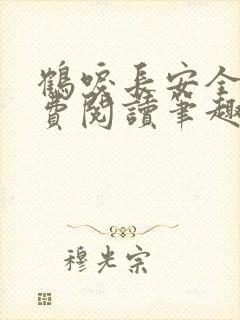 鶴唳長安全
費閱讀筆趣
穆光宗